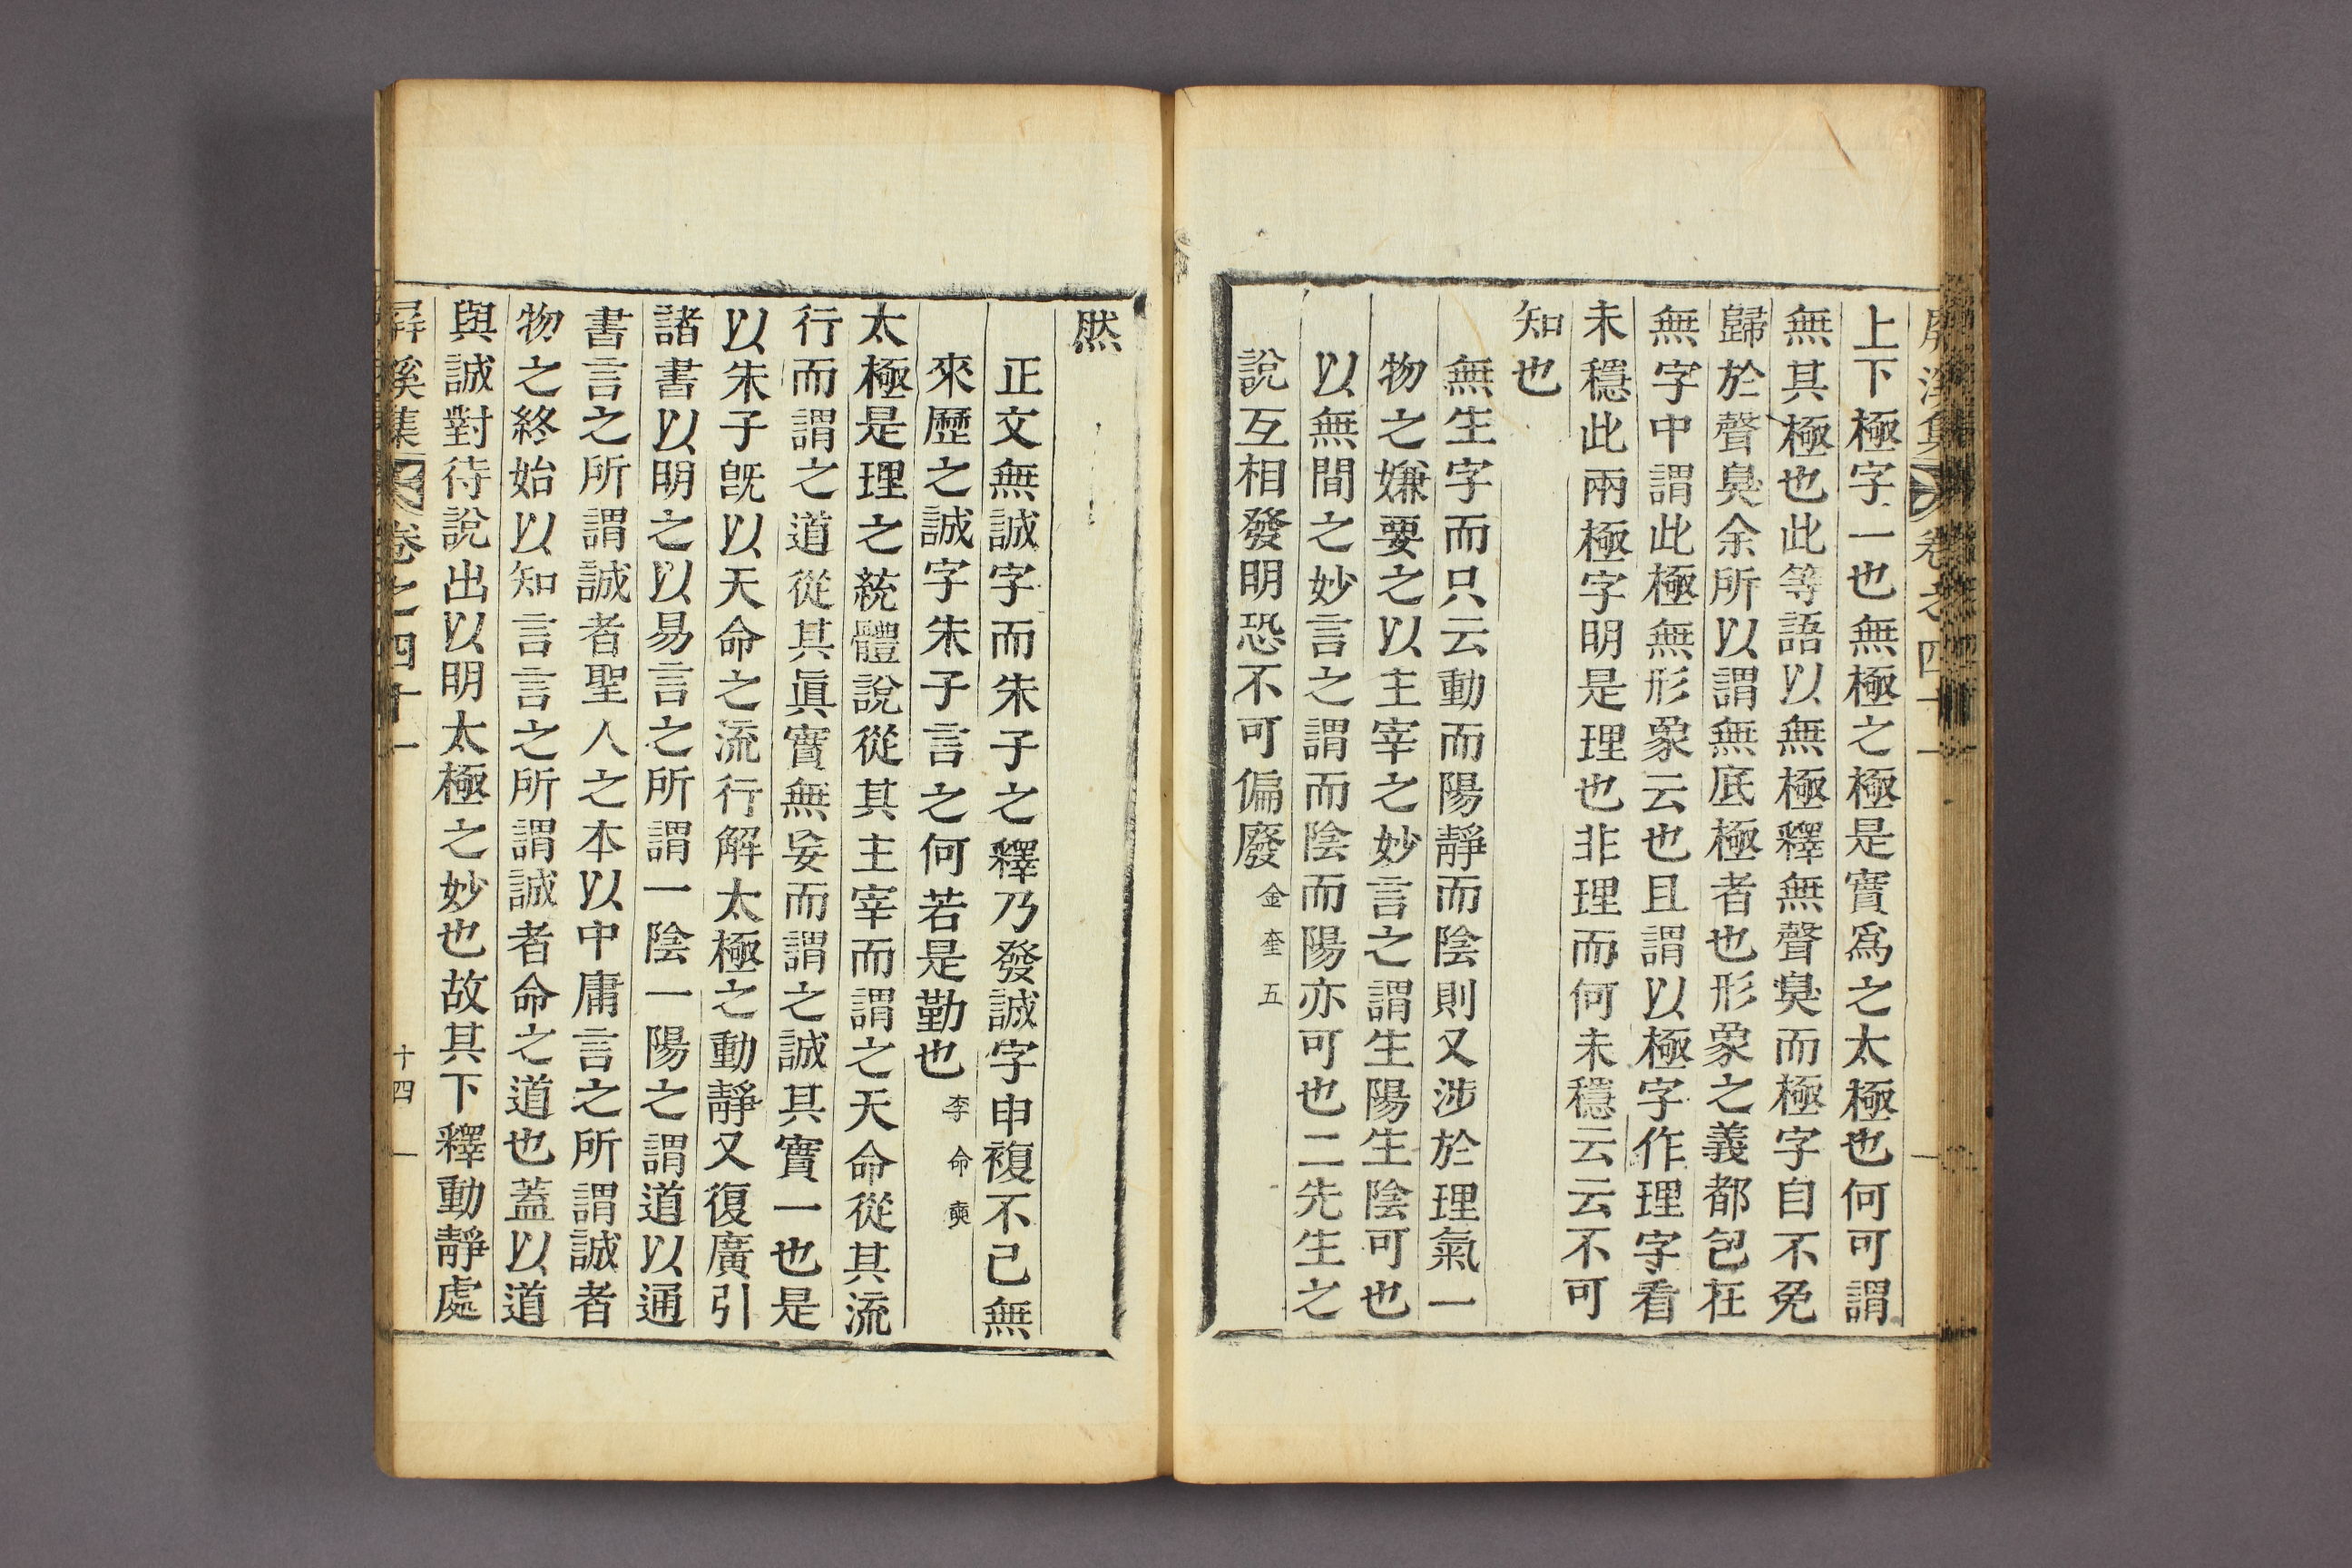 屛溪集 卷之四十一
上下極字一也無極之極是實爲之太極也何可謂
無其極也此等語以無極釋無聲臭而極字自不免
歸於聲臭余所以謂無底極者也形象之義都包在
無字中謂此極無形象云也且謂以極字作理字看
未穩此兩極字明是理也非理而何未穩云云不可
知也
無生字而只云動而陽靜而陰則又涉於理氣一
物之嫌要之以主宰之妙言之謂生陽生陰可也
以無間之妙言之謂而陰而陽亦可也二先生之
說互相發明恐不可偏廢金奎五
然
正文無誠字而朱子之釋乃發誠字申複不已無
來歷之誠字朱子言之何若是勤也李命奭
太極是理之統體說從其主宰而謂之天命從其流
行而謂之道從其眞實無妄而謂之誠其實一也是
以朱子旣以天命之流行解太極之動靜又復廣引
諸書以明之以易言之所謂一陰一陽之謂道以通
書言之所謂誠者聖人之本以中庸言之所謂誠者
物之終始以知言言之所謂誠者命之道也蓋以道
與誠對待說出以明太極之妙也故其下釋動靜處
屛溪集 卷之四十一 十四